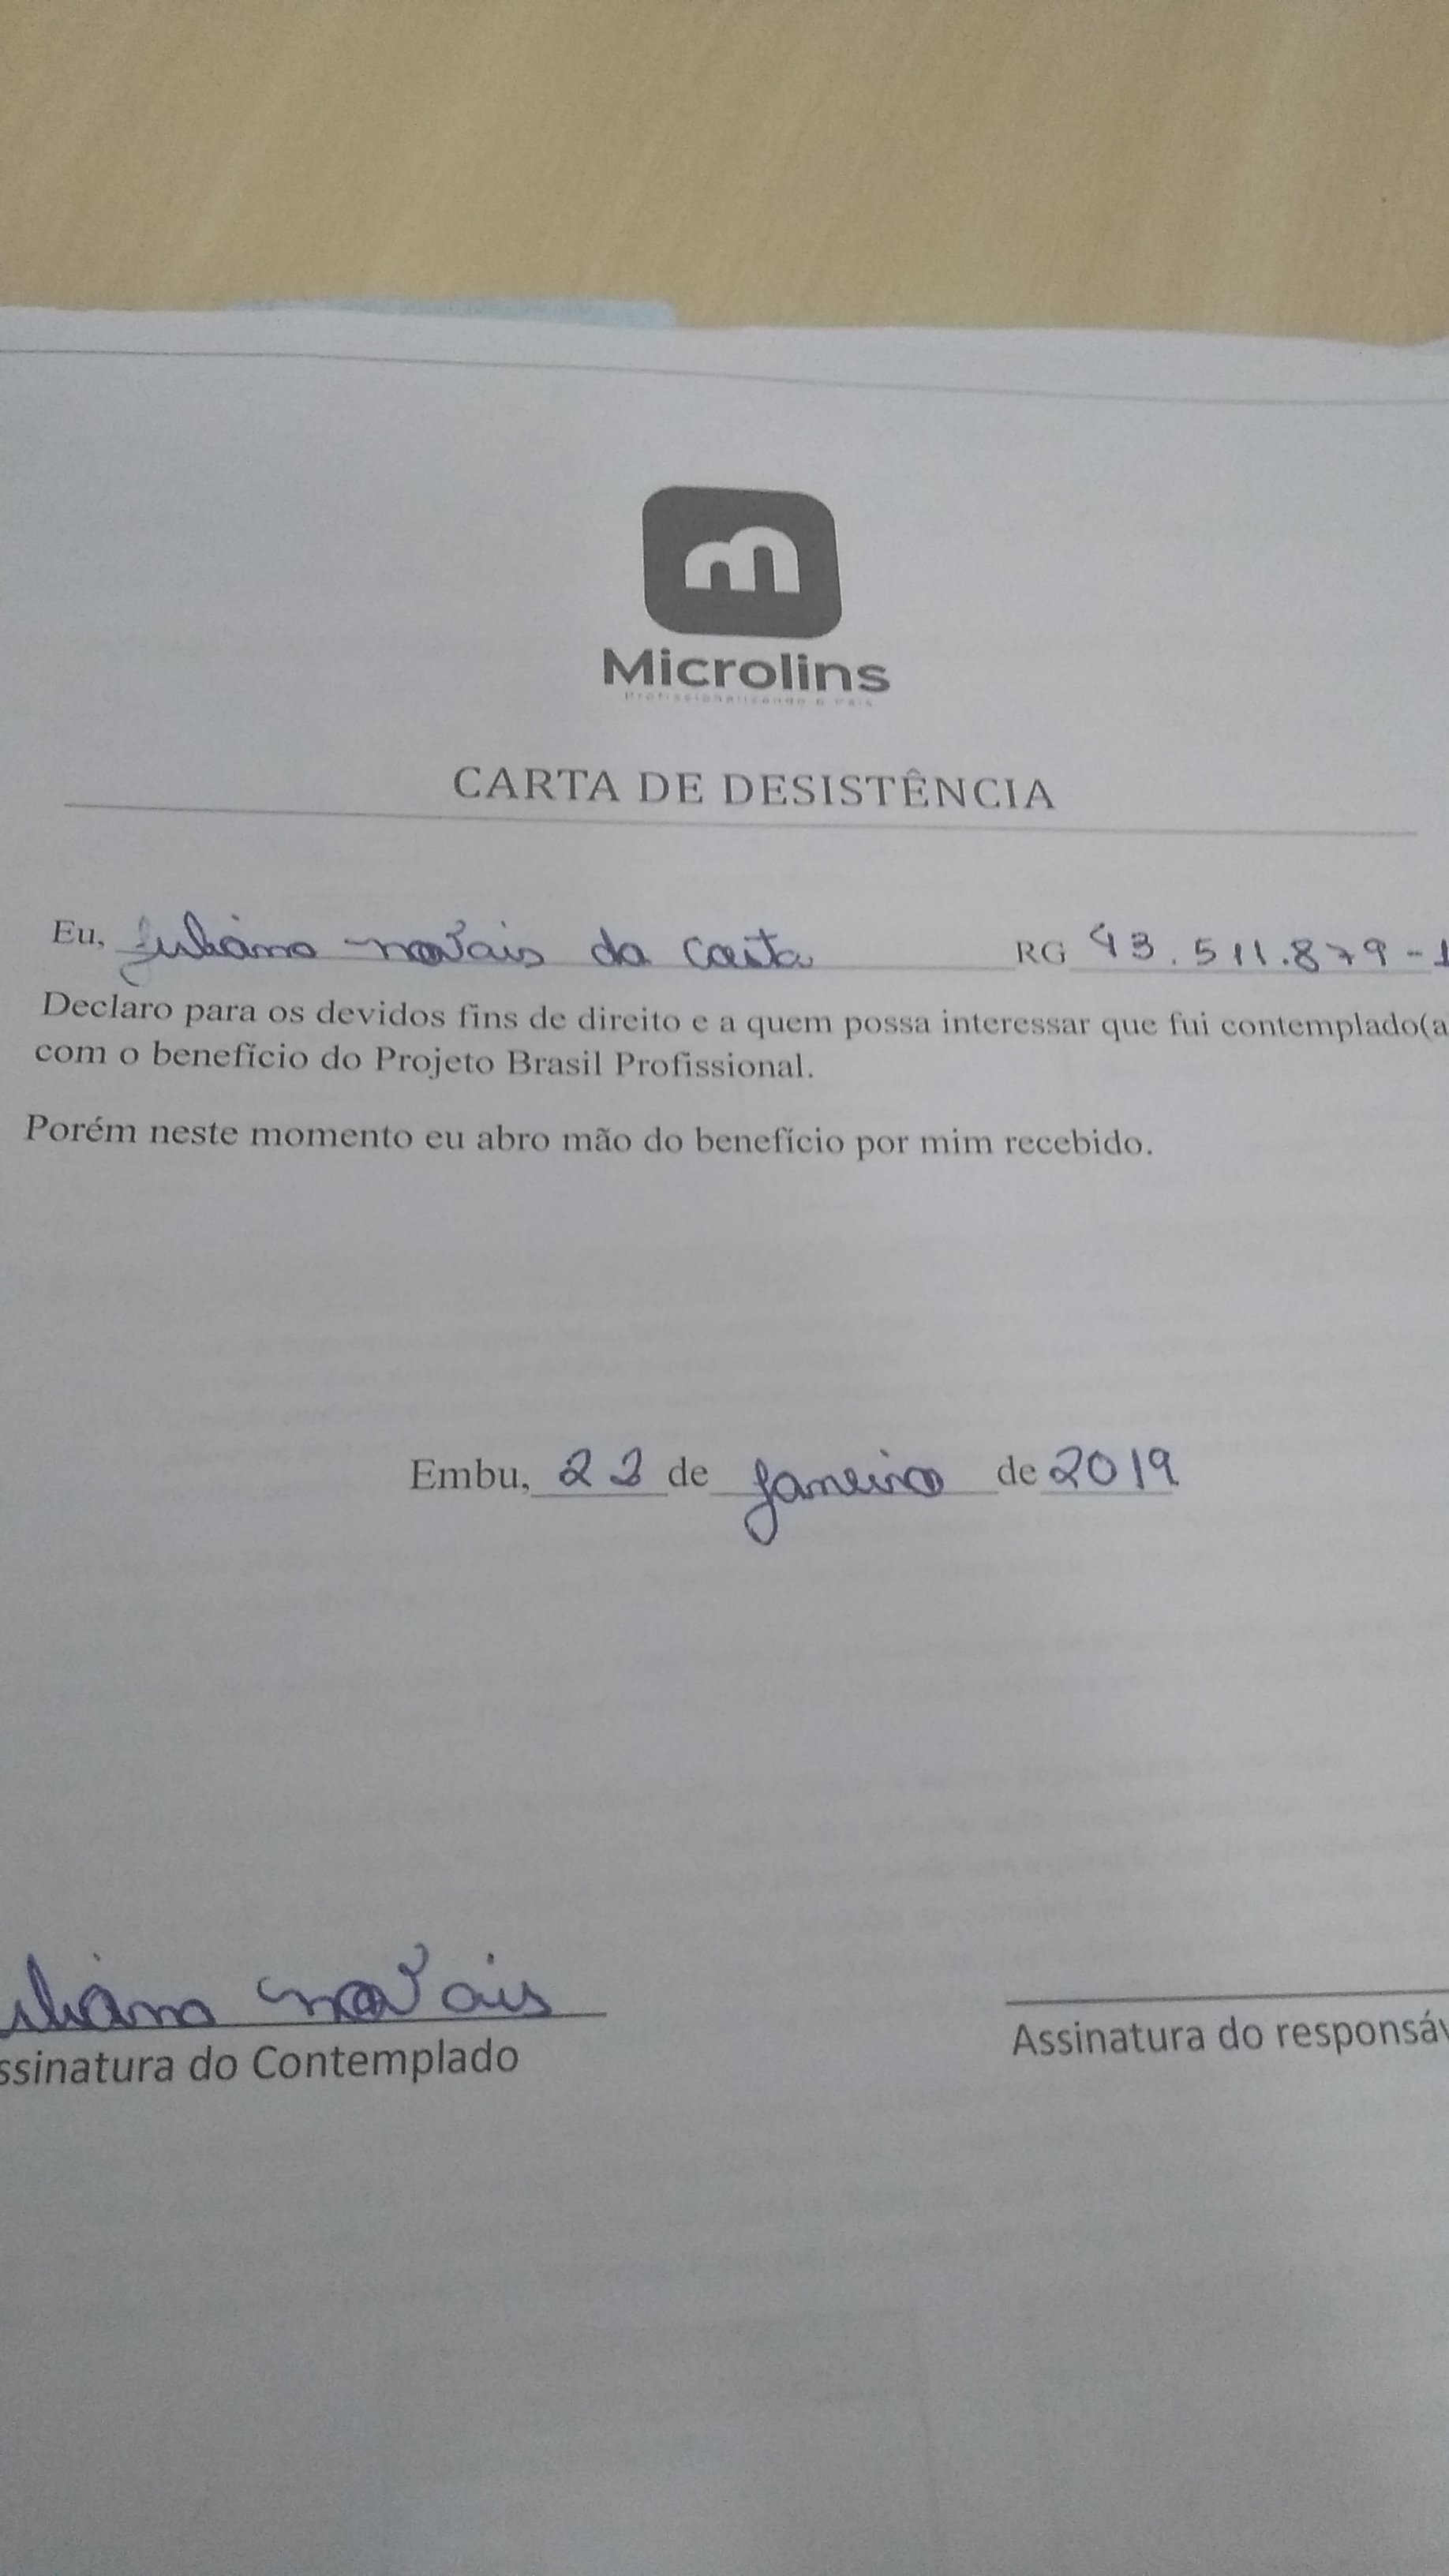 m
Microlins
Profissionalizando o País
CARTA DE DESISTÊNCIA
Eu, Juliana novais da Costa RG 43.511.879-1
Declaro para os devidos fins de direito e a quem possa interessar que fui contemplado(a
com o benefício do Projeto Brasil Profissional.
Porém neste momento eu abro mão do benefício por mim recebido.
Embu, 22 de Janeiro de 2019
uliana novais
ssinatura do Contemplado
Assinatura do responsáv